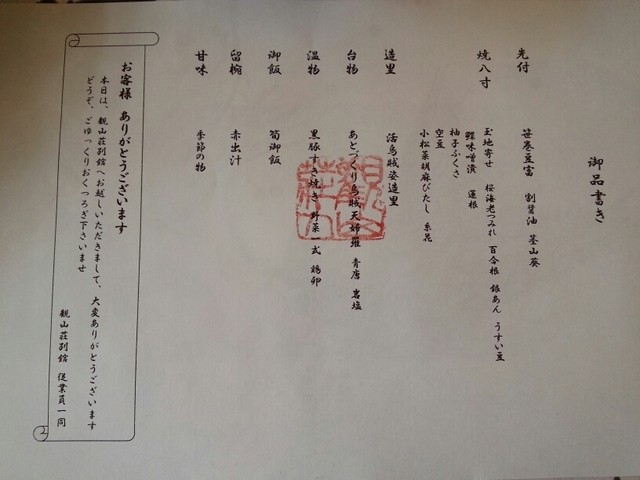 御品書き
先付 笹巻豆富 割醤油 茎山葵
焼八寸 玉地寄せ 桜海老つみれ 百合根 銀あん うすい豆
鰹味噌漬 蓮根
柚子ふくさ
空豆
小松菜胡麻びたし 糸花
造里 活烏賊姿造里
台物 あとづくり烏賊天婦羅 青唐 岩塩
温物 黒豚すき焼き 野菜一式 鶏卵
御飯 筍御飯
留椀 赤出汁
甘味 季節の物
お客様 ありがとうございます
本日は、観山荘別館へお越しいただきまして、大変ありがとうございます
どうぞ、ごゆっくりおくつろぎ下さいませ
観山荘別館 従業員一同